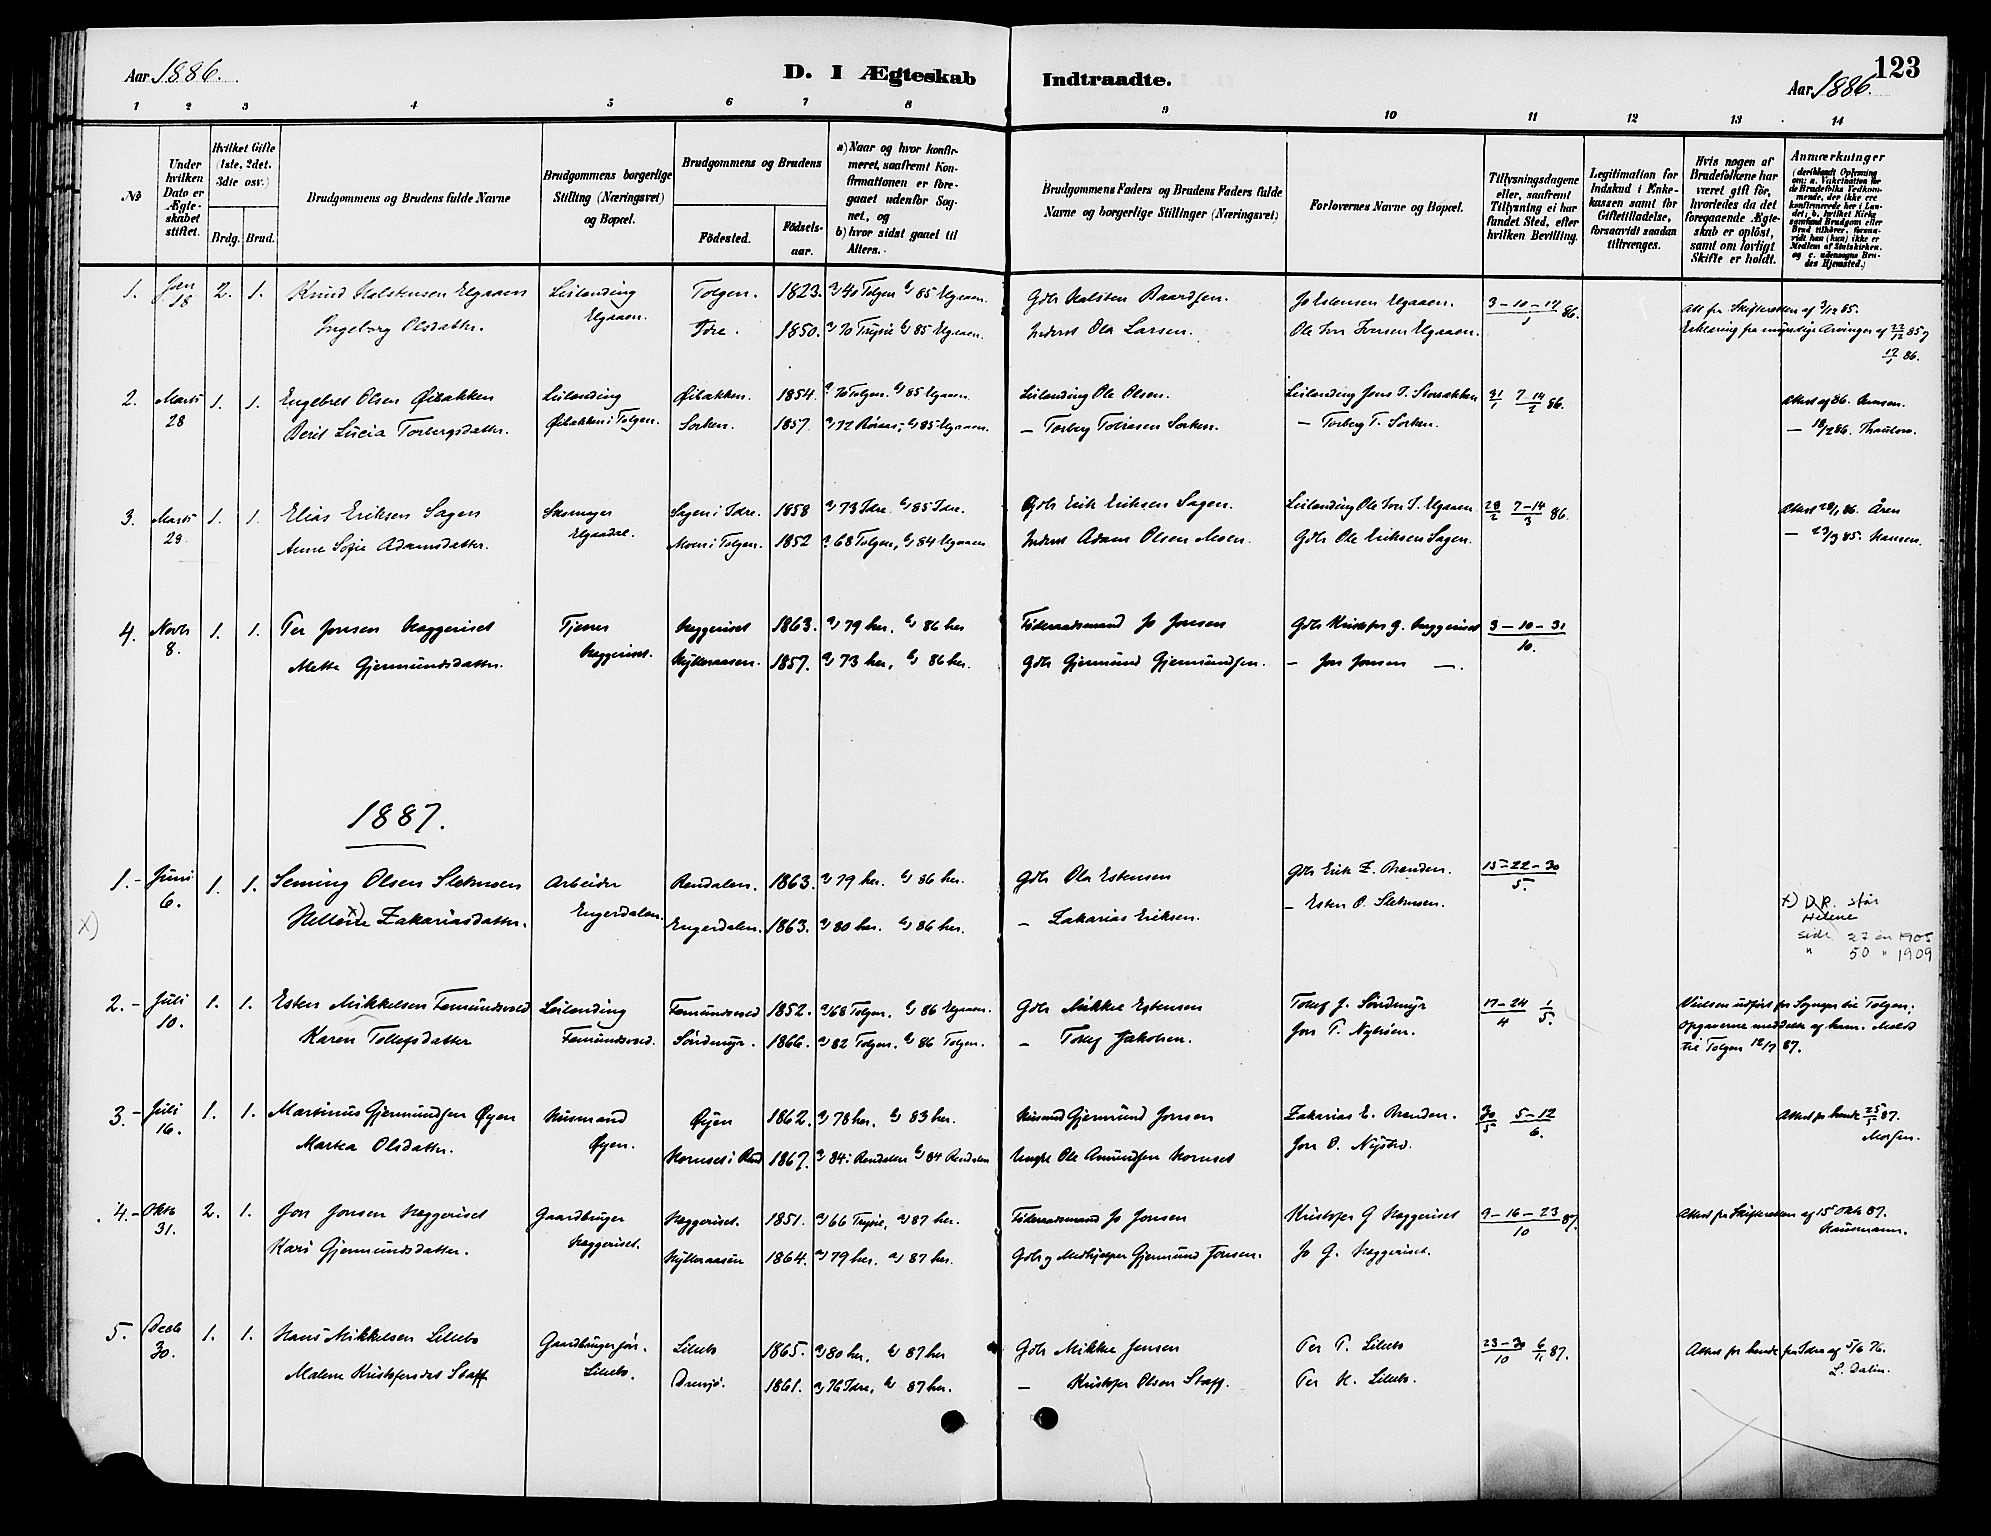 Aar 1886.
D. I Ægteskab Indtraadte.
123
Aar 1886.
1 2 3 4 5 6 7 8 9 10 11 12 13 14
No
Under hvilken Dato er Ægteskabet stiftet.
Hvilket Gifte (1ste, 2det, 3die osv.)
Brdg. Brud.
Brudgommens og Brudens fulde Navne
Brudgommens borgerlige Stilling (Næringsvei) og Bopæl.
Brudgommens og Brudens
Födested. Födselsaar.
a) Naar og hvor konfirmeret, saafremt Konfirmationen er foregaaet udenfor Sognet, og
b) hvor sidst gaaet til Alters.
Brudgommens Faders og Brudens Faders fulde Navne og borgerlige Stillinger (Næringsvei)
Forlovernes Navne og Bopæl.
Tillysningsdagene eller, saafremt Tillysning ei har fundet Sted, efter hvilken Bevilling.
Legitimation for Indskud i Enkekassen samt for Giftetilladelse, forsaavidt saadan tiltrænges.
Hvis nogen af Brudefolkene har været gift för, hvorledes da det foregaaende Ægteskab er oplöst, samt om lovligt Skifte er holdt.
Anmærkninger
1. Jan 18 2. 1. Knud Halstensen Elgaaen Leilænding Tolgen. 1823. a) 40 Tolgen b) 85 Elgaaen. Gdbr Halsten Baardsen. Jo Estensen Elgaaen. 3-10-17/1 86. Att fra Skifteretten af 3/12 85.
Ingeborg Olsdatter. Elgaaen. Idre. 1850. a) 70 Trysil b) 85 Elgaaen. Inderst Ola Larsen. Ole Iver Iversen Elgaaen. Erklæring fra myndige Arvinger af 22/12 85 og
17/1 86.
2. Marts 28 1. 1. Engebret Olsen Øibakken Leilænding Øibakken. 1854. a) 70 Tolgen. b) 85 Elgaaen. Leilænding Ole Olsen. Leilænding Jens T. Storbakken 31/1 7-14/2 86.
Berit Lucia Torbergsdatter. Øibakken i Tolgen. Sorken. 1857. a) 72 Röros, b) 85 Elgaaen. — Torberg Tobiasen Sorken. — Torberg T. Sorken. — 18/2 86. Thaulow.
3. Marts 29 1. 1. Elias Eriksen Sagen Skomager Sagen i Idre. 1858 a) 73 Idre. b) 85 Idre. Gdbr Erik Eriksen Sagen. Leilænding Ole Iver I. Elgaaen 28/2 7-14/3 86. Attest 28/1 86. Åren
Anne Sofie Adamsdatter. Moen i Tolgen. 1852 a) 68 Tolgen, b) 84 Elgaaen Inderst Adam Olsen Moen. Gdbr Ole Eriksen Sagen. — 23/3 85. Hansen.
4. Novbr 8. 1. 1. Per Jonsen Heggeriset Tjener Heggeriset 1863. a) 79 her. b) 86 her Föderaadsmand Jo Jonsen Gdbr Kristofer G. Heggeriset 3-10-31/10.
Mette Gjermundsdatter. Heggeriset. Hylleraasen. 1857. a) 73 her, b) 86 her. Gdbr Gjermund Gjermundsen. — Jon Jonsen —.
1887.
1.- Juni 6. 1. 1. Seming Olsen Sletmoen Arbeider Rendalen. 1863. a) 79 her. b) 86 her. Gdbr Ola Estensen Gdbr Erik Z. Brænden. 15-22-30/5.
x) Hellene x) Zakariasdatter. Engerdalen. Engerdalen. 1863. a) 80 her. b) 86 her. — Zakarias Eriksen. — Esten O. Sletmoen. x) D.R. står
Helene
side 27 år 1905
" 50 " 1909
2.- Juli 10. 1. 1. Esten Mikkelsen Femundsvold Leilænding Femundsvold 1852. a) 68 Tolgen. b) 86 Elgaaen. Gdbr Mikkel Estensen Tollef J. Söndmyr 17-24/4 1/5. Vielsen udfört for Sognepr til Tolgen;
Karen Tollefsdatter Femundsvold. Söndmyr. 1866. a) 82 Tolgen. b) 86 Tolgen. — Tollef Jakobsen. Jon P. Nyhöen. Opgaverne meddelt af ham. Meldt
til Tolgen 12/7 87.
3.- Juli 16. 1. 1. Martinus Gjermundsen Øyen Husmand Øyen 1862. a) 78 her. b) 83 her. Husmd Gjermund Jonsen Zakarias E. Brænden. 30/5 5-12/6. Attest for hende 25/5 87.
Marta Olsdatter. Øyen. Hornset i Rend 1867. a) 84 i Rendalen b) 84 Rendalen Ungk Ole Amundsen Hornset Jon O. Nysted.
4.- Oktb 31. 2. 1. Jon Jonsen Heggeriset Gaardbruger Heggeriset. 1851. a) 66 Trysil, b) 87 her. Föderaadsmand Jo Jonsen Kristofer G Heggeriset 9-16-23/10 87. Attest fr Skifteretten af 15 Oktr 87.
Kari Gjermundsdatter. Heggeriset. Hylleraasen 1864. a) 79 her. b) 87 her. Gdbr og Medhjelper Gjermund Jonsen. Jo G. Heggeriset.
5. Decb 30. 1. 1. Hans Mikkelsen Lillebo Gaardbrugersön. Lillebo 1865. a) 80 her, b) 87 her Gdbr Mikkel Jensen Per P. Lillebo 23-30/10 6/11 87. Attest for hende fra Idre af 5/6 76.
Malene Kristofersdat Staff Lillebo. Drevsjö. 1861. a) 76 Idre, b) 87 her. — Kristofer Olsen Staff. Per H. Lillebo. L. Dalin.